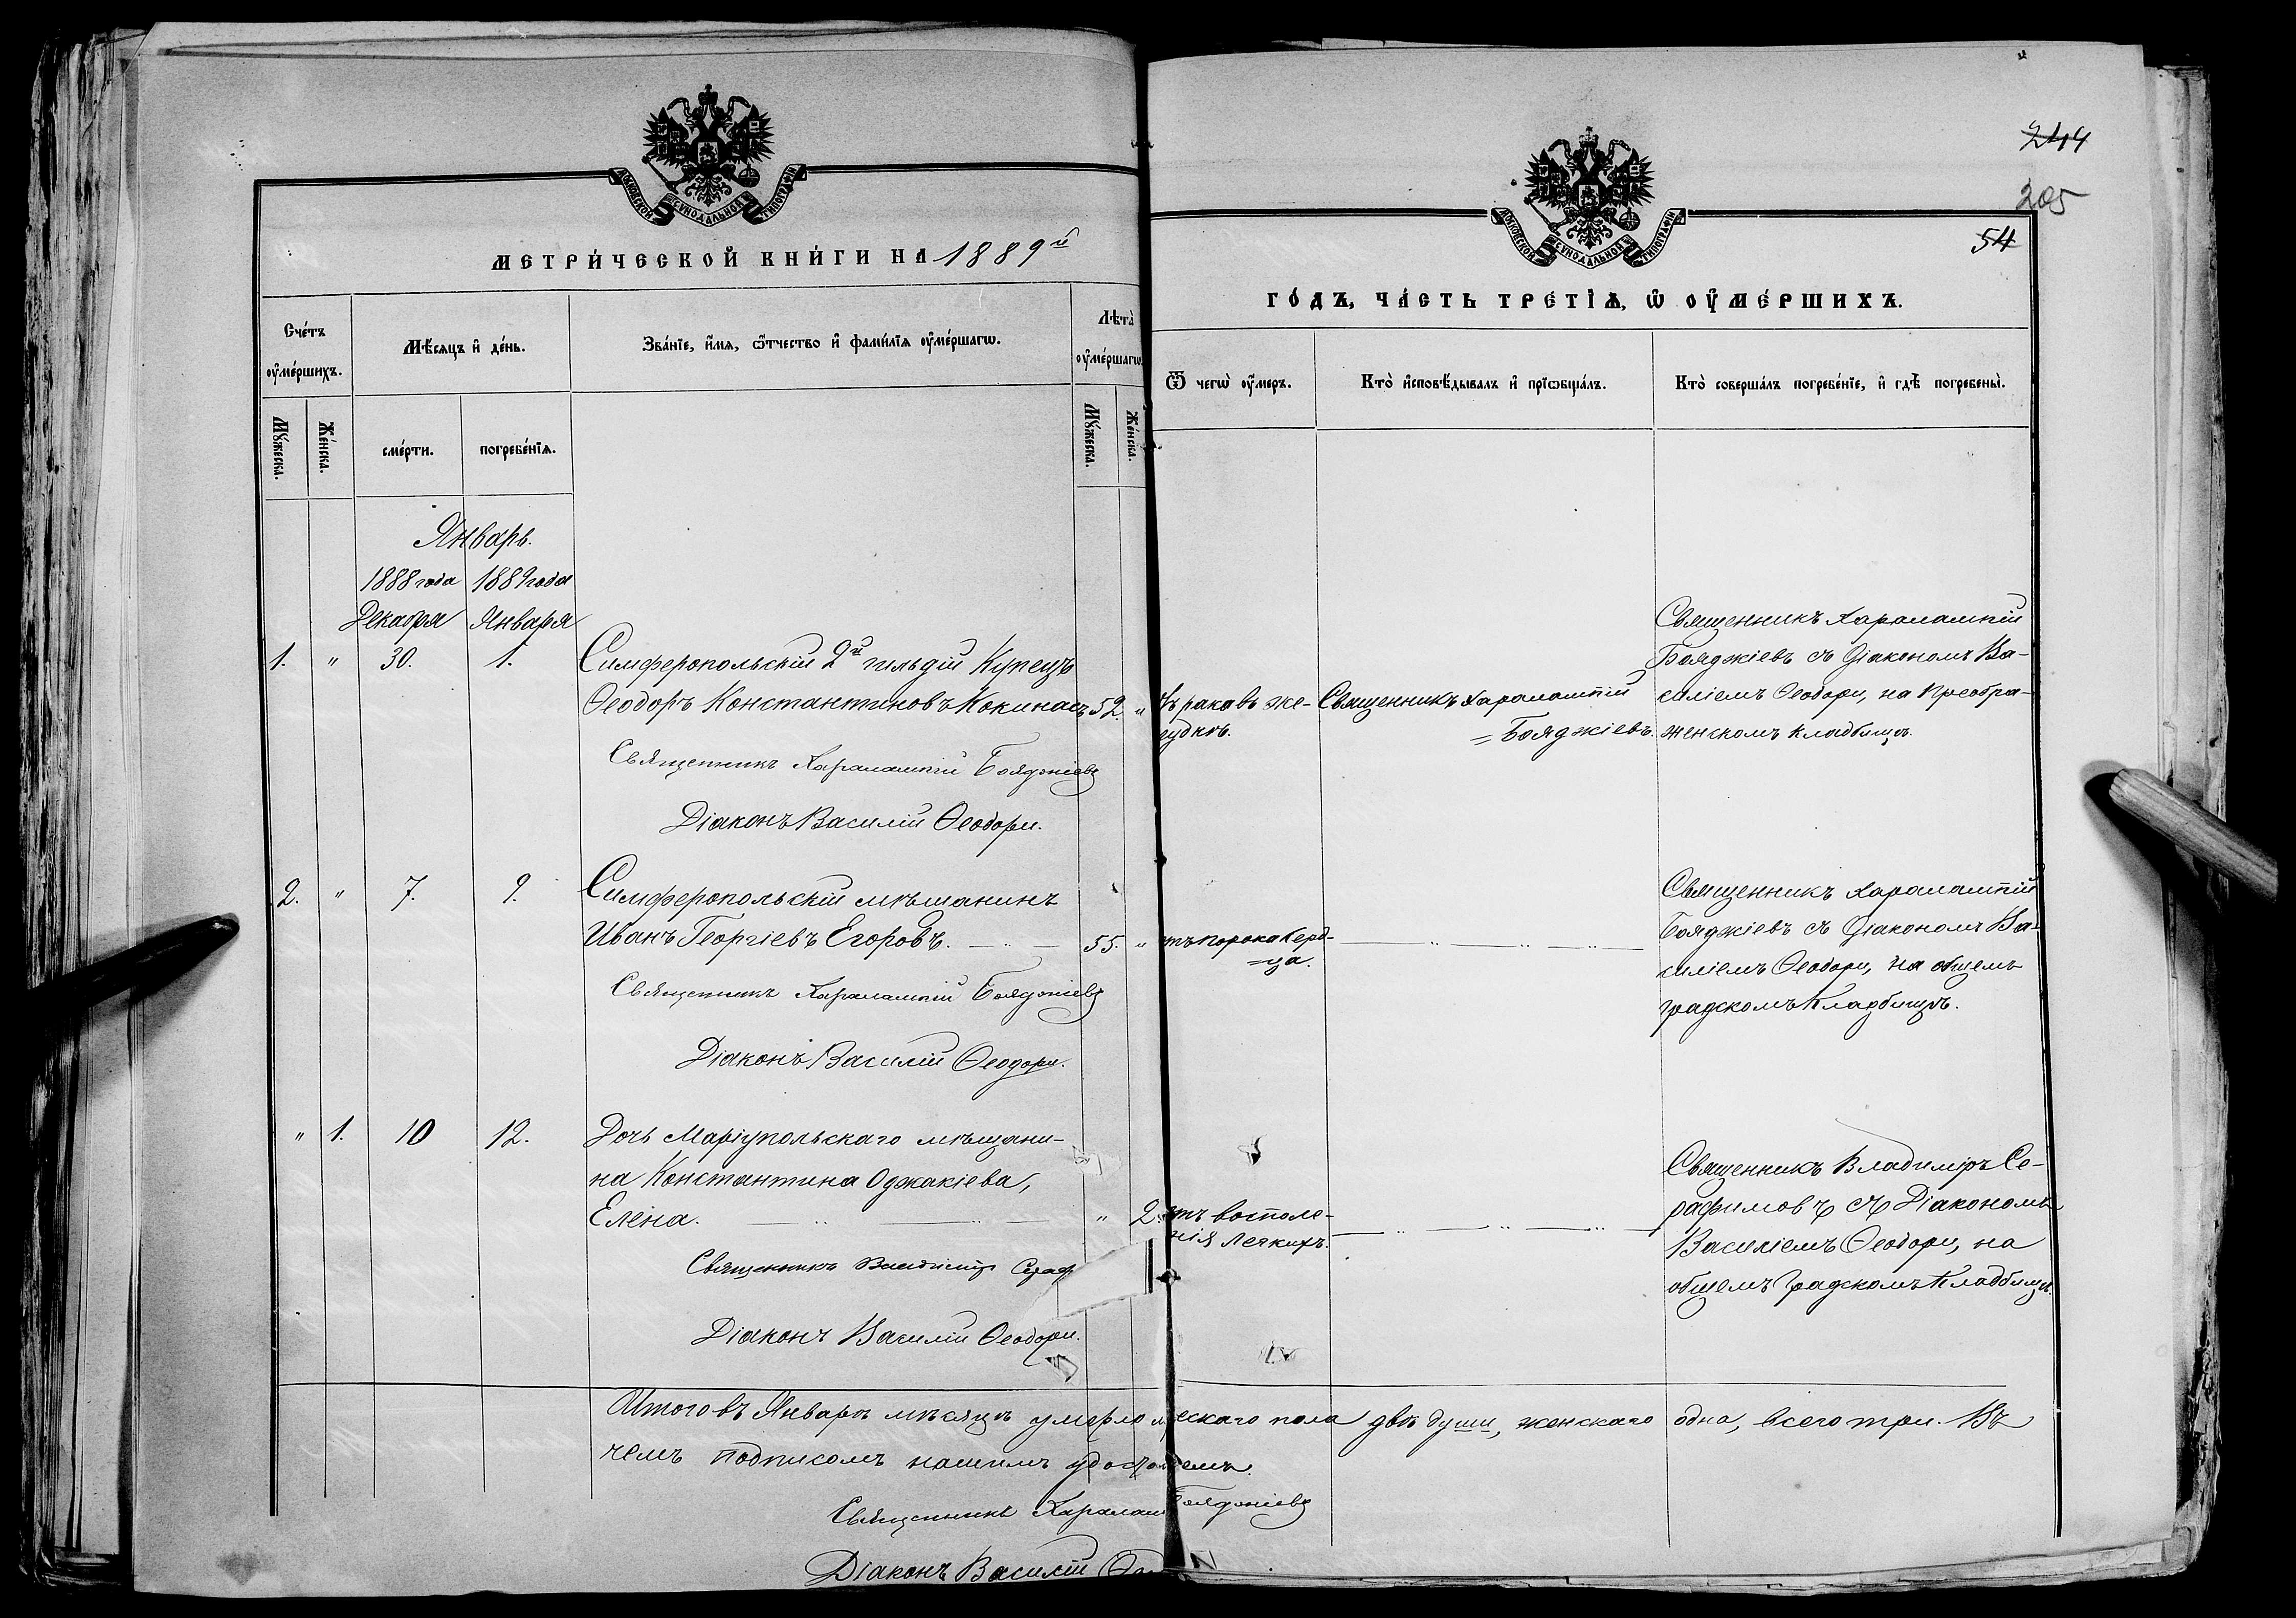 244
205
54
МОСКОВСКОЙ СУНОДАЛЬНОЙ ТИПОГРАФІИ
МОСКОВСКОЙ СУНОДАЛЬНОЙ ТИПОГРАФІИ
МЕТРИ́ЧЕСКОЙ КНИ́ГИ НА 1889й
ГО́ДЪ, ЧА́СТЬ ТРЕ́ТІѦ, Ѡ҆ ОУ҆МЕ́РШИХЪ.
Сче́тъ оу҆ме́ршихъ.
Мѣ́сяцъ и҆ де́нь.
Зва́нїе, и҆́мѧ, ѻ҆́тчество и҆ фами́лїѧ оу҆ме́ршагѡ.
Лѣта̀ оу҆ме́ршагѡ.
Ѿ чегѡ̀ оу҆́меръ.
Кто̀ и҆сповѣ́дывалъ и҆ прїѡбща́лъ.
Кто̀ соверша́лъ погребе́нїе, и҆ гдѣ̀ погребены̀.
Мꙋ́жеска.
Же́нска.
сме́рти.
погребе́нїѧ.
Мꙋ́жеска.
Же́нска.
Январь.
1888 года 1889 года
Декабря Января
1. " 30. 1.
Симферопольскій 2й гильдіи Купецъ
Ѳеодоръ Константиновъ Кокинасъ 52. "
Священникъ Харалампій Бояджіевъ
Діаконъ Василій Ѳеодори.
ъ рака въ же-
лудкѣ.
Священникъ Харалампій
Бояджіевъ.
Священникъ Харалампій
Бояджіевъ съ Діакономъ Ва-
силіемъ Ѳеодори, на Преобра-
женскомъ кладбищѣ.
2. " 7. 9.
Симферопольскій мѣщанинъ
Иванъ Георгіевъ Егоровъ. 55. "
Священникъ Харалампій Бояджіевъ
Діаконъ Василій Ѳеодори.
тъ порока Серд-
ца.
Священникъ Харалампій
Бояджіевъ съ Діакономъ Ва-
силіемъ Ѳеодори, на общемъ
градскомъ Кладбищѣ.
" 1. 10 12.
Дочь Маріупольскаго мѣщани-
на Константина Оджакіева,
Елена. " 2.
Священникъ Владиміръ Сераф
Діаконъ Василій Ѳеодори.
тъ воспале-
нія Легкихъ.
Священникъ Владиміръ Се-
рафимовъ съ Діакономъ
Василіемъ Ѳеодори, на
общемъ градскомъ Кладбищѣ.
Итого въ Январѣ мѣсяцѣ умерло мужескаго пола двѣ души, женскаго одна, всего три. Въ
чемъ подписомъ нашимъ удостовѣряемъ.
Священникъ Харалам Бояджіевъ
Діаконъ Василій Ѳео